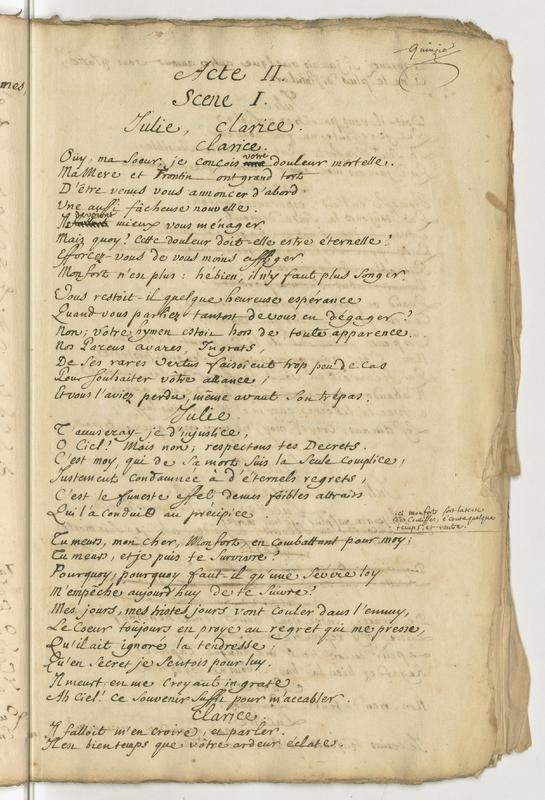 mes,
Quinzie
Acte II
Scene I.
Julie, Clarice.
Clarice.
Oüy, ma Soeur, je conçois votre douleur mortelle.
Ma Mere et Frontin ont grand tort
D'être venus vous annoncer d'abord
Une aussi fâcheuse nouvelle.
Ils devoient mieux vous ménager
Mais quoy? Cette douleur doit-elle estre éternelle?
Efforcez-vous de vous moins affliger
Monfort n'est plus: hé bien, il n'y faut plus songer.
Vous restoit-il quelque heureuse espérance
Quand vous parliez tantost de vous en dégager?
Non; vôtre hymen estoit hors de toute apparence.
Nos Parens avares, Ingrats,
De Ses rares Vertus faisoient trop peu de cas
Pour souhaiter vôtre alliance;
Et vous l'aviez perdu, même avant Son trépas.
Julie.
T'accuseray-je d'injustice,
O Ciel? Mais non, respectons tes Decrets.
C'est moy, qui de Sa mort Suis la Seule Complice,
Justement Condamnée a d'éternels regrets,
C'est le funeste effet de mes foibles attraits
Qui l'a conduit au précipice.
ici monfort sort
les Coulisses, écoute quelque
temps, et rentre.
Tu meurs, mon cher, Monfort, en Combattant pour moy;
Tu meurs, et je puis te Survivre?
Pourquoy, pourquoy faut-il qu'une Sévere loy
M'empêche aujourd'huy de te Suivre?
Mes jours, mes tristes jours vont couler dans l'ennuy,
Le Coeur toujours en proye au regret qui me presse,
Qu'il ait ignoré la tendresse,
Qu'en Secret je Sentois pour luy.
Il meurt en me Croyant ingrate.
Ah Ciel! Ce Souvenir Suffit pour m'accabler.
Clarice.
Il falloit m'en croire, et parler.
Il est bien temps que vôtre ardeur éclate.